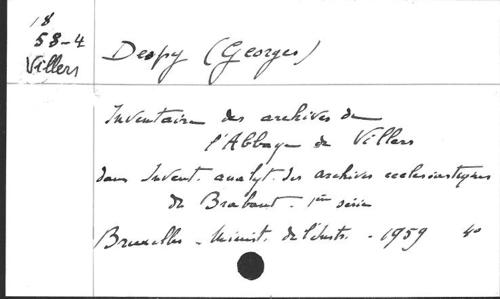 18
58-4
Villers
Despy (Georges)
Inventaire des archives de
l'Abbaye de Villers
dans Invent. analyt. des archives ecclésiastiques
du Brabant. 1ère série
Bruxelles - Minist. de l'Instr. - 1959 4°